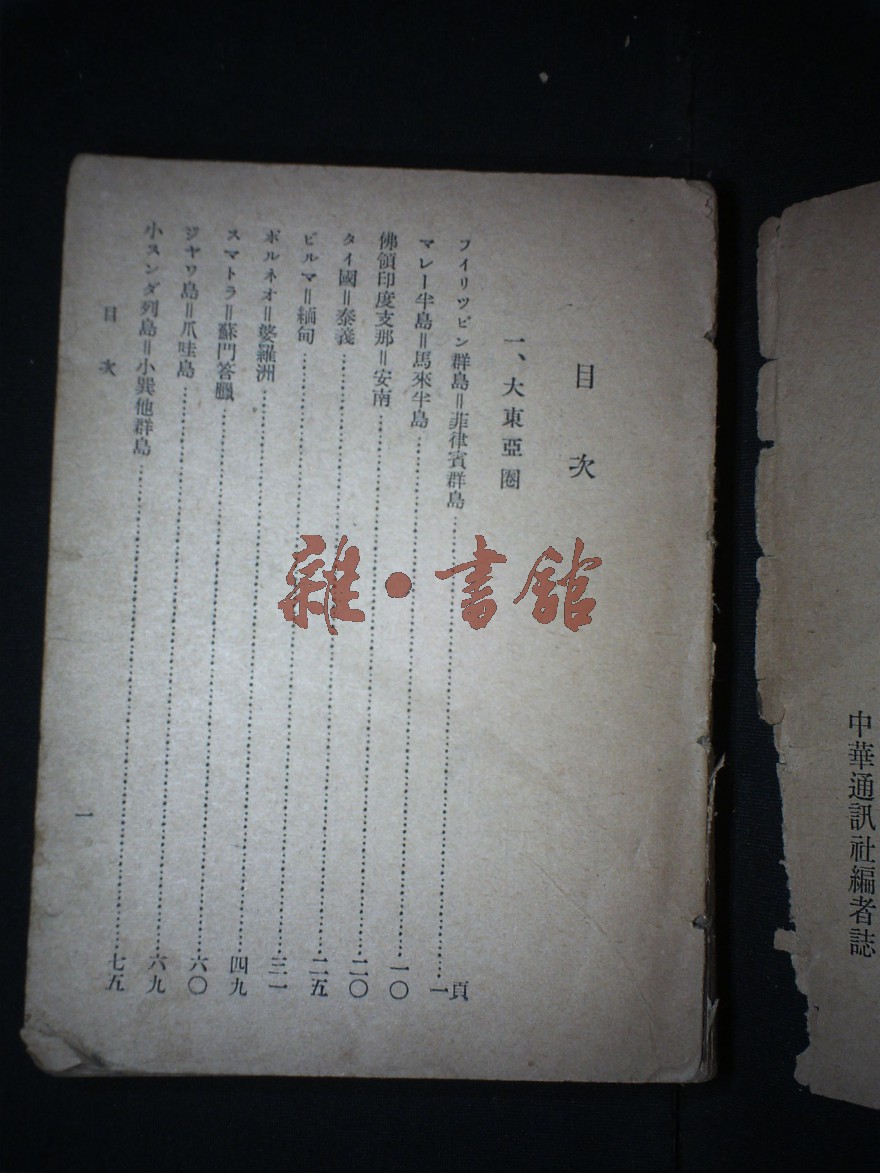 中華通訊社編者誌
目次
一、大東亞圈
頁
フイリツピン群島=菲律賓群島……一
マレー半島=馬來半島……一〇
佛領印度支那=安南……二〇
タイ國=泰義……二五
ビルマ=緬甸……三一
ボルネオ=婆羅洲……四九
スマトラ=蘇門答臘……六〇
ジヤワ島=爪哇島……六九
小スンダ列島=小巽他群島……七五
目次
一
雜•書館